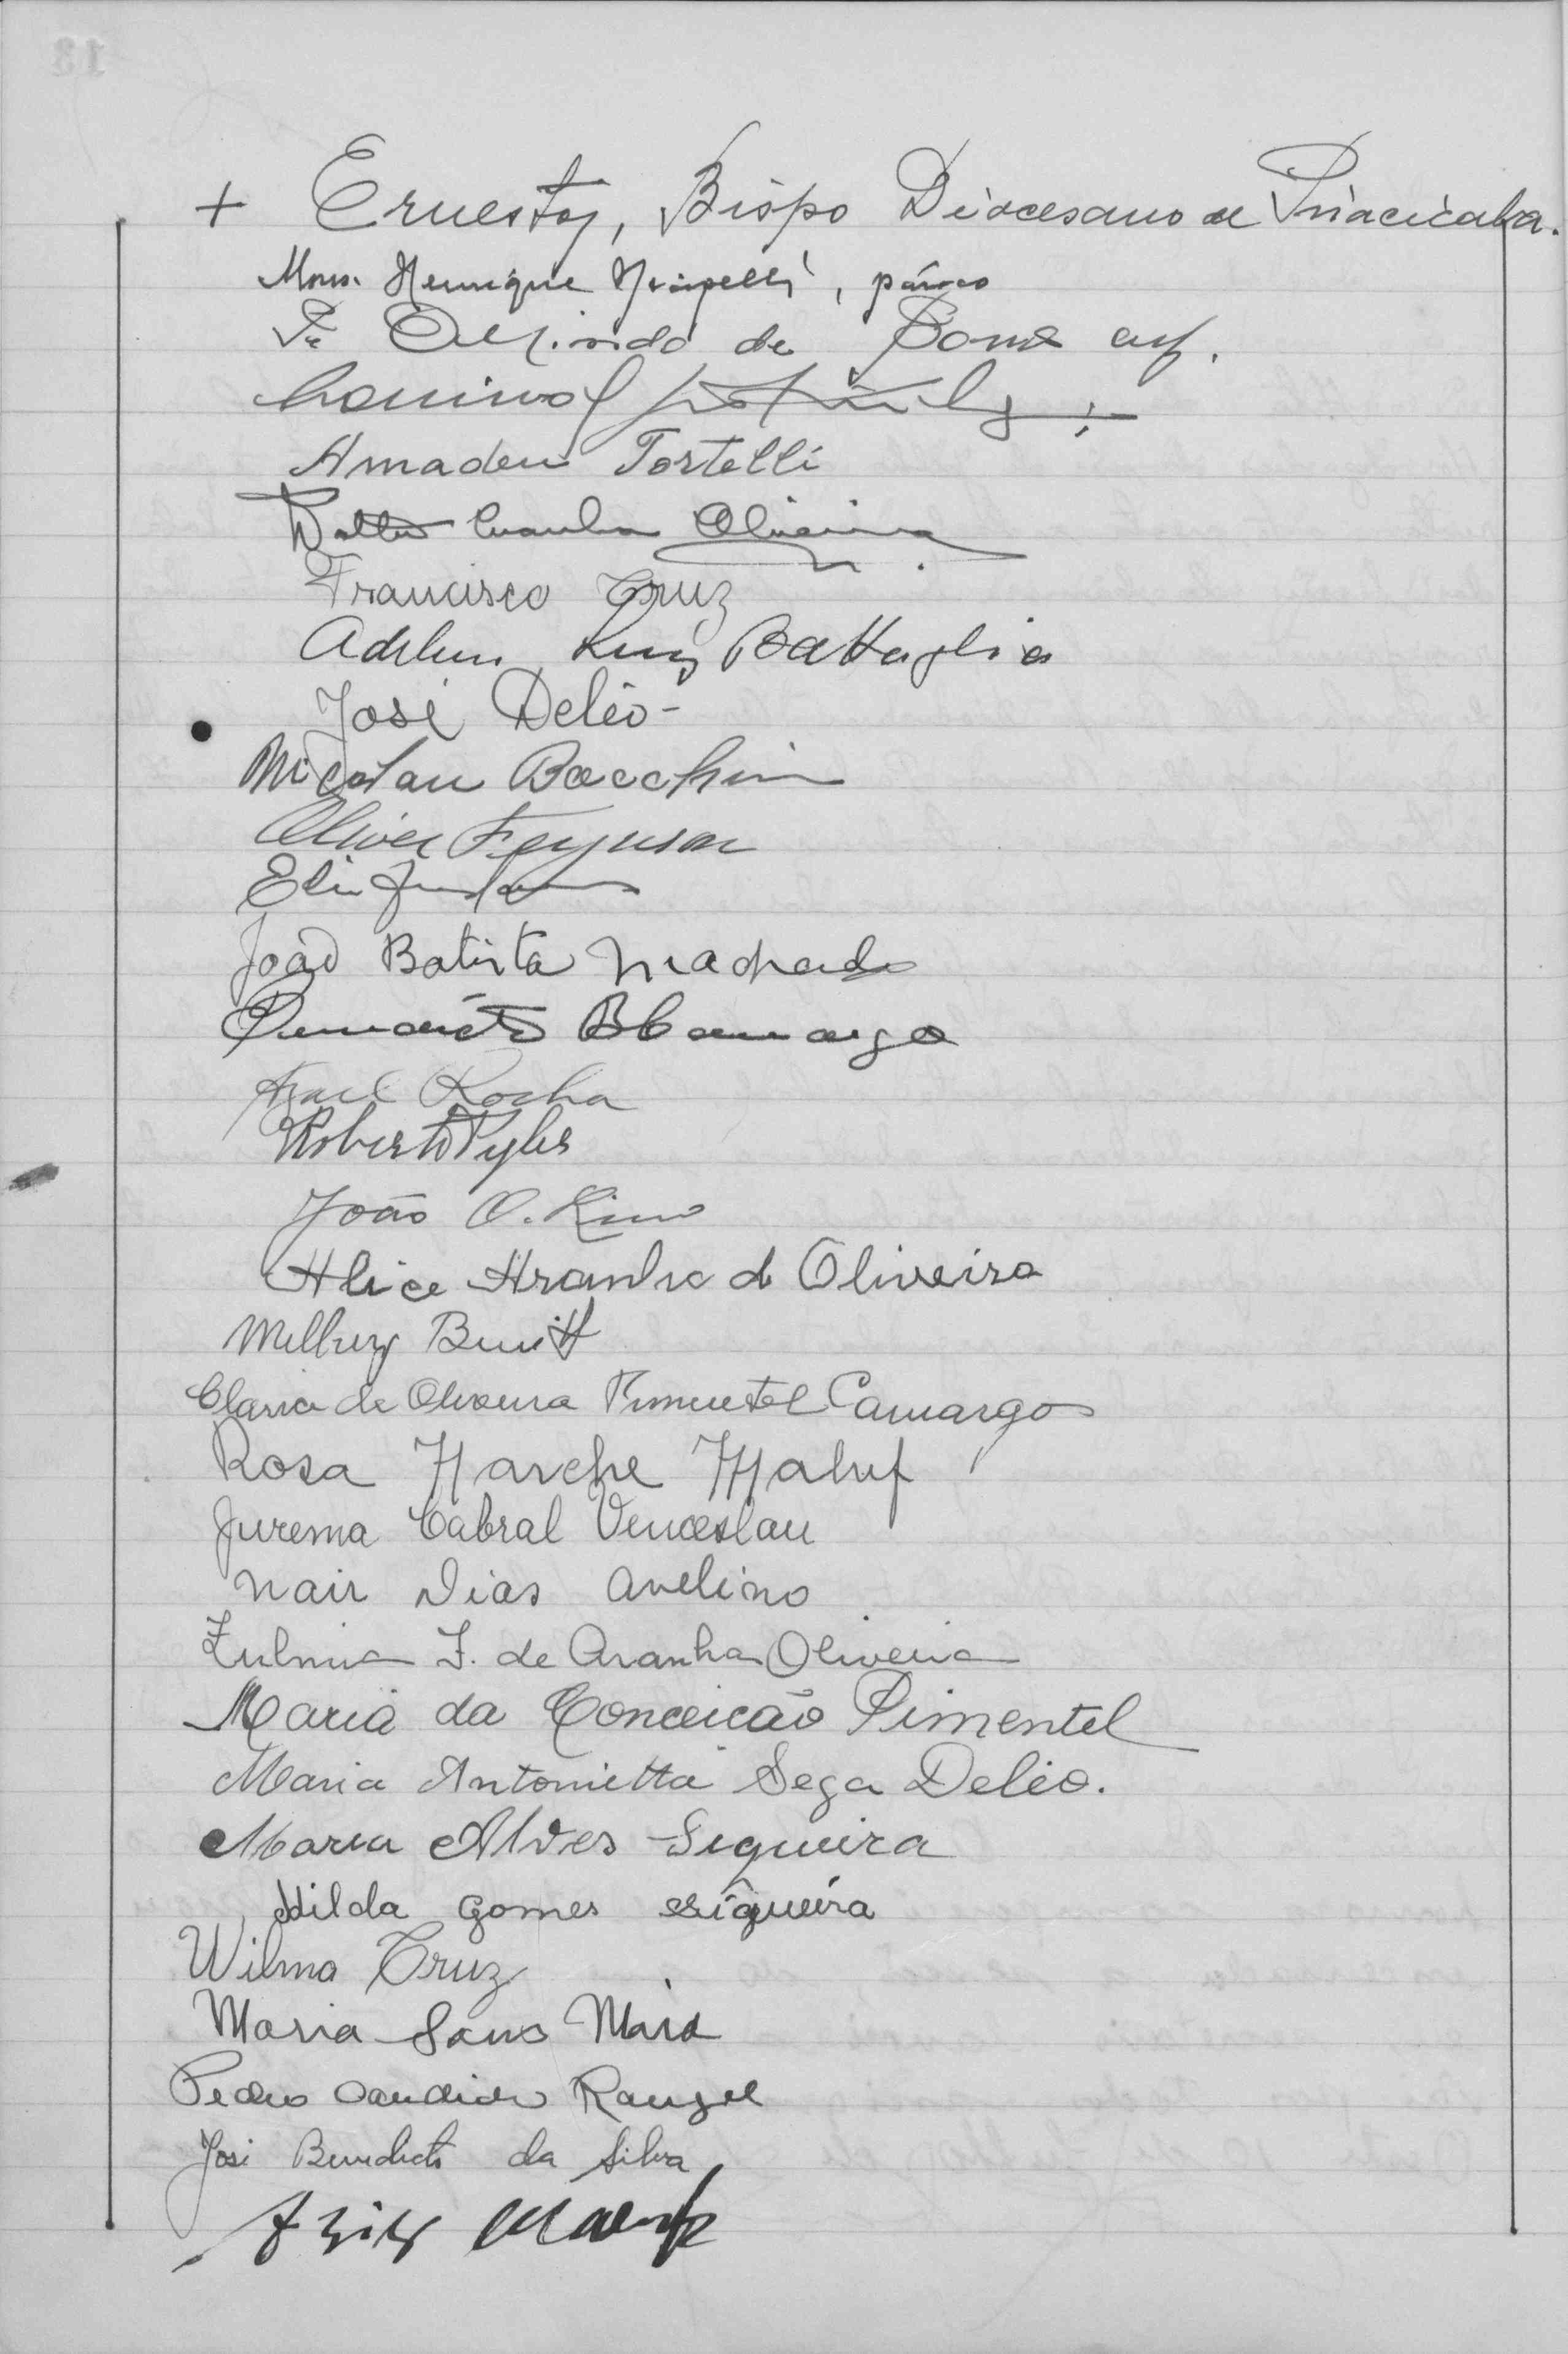 + Ernesto, Bispo Diocesano de Piracicaba.
Mons. Henrique Nicopelli, pároco
Pe de
Amadeu Tortelli
Walter Aranha Oliveira
Francisco Cruz
Luiz Battaglia
José Deléo -
Nicolau Bacchin
Oliver Ferguson
João Batista Machado
B Camargo
Rocha
Roberto Pyles
João O. Lino
Alice Aranha de Oliveira
Clarice de Oliveira Pimentel Camargo
Rosa Narche Maluf
Jurema Cabral Venceslau
Nair Dias Avelino
Zulmira F. de Aranha Oliveira
Maria da Conceicão Pimentel
Maria Antonietta Sega Deléo.
Maria Alves Siqueira
Hilda Gomes Siqueira
Wilma Cruz
Maria Sans Maia
Pedro Candido Rangel
José Benedicto da Silva